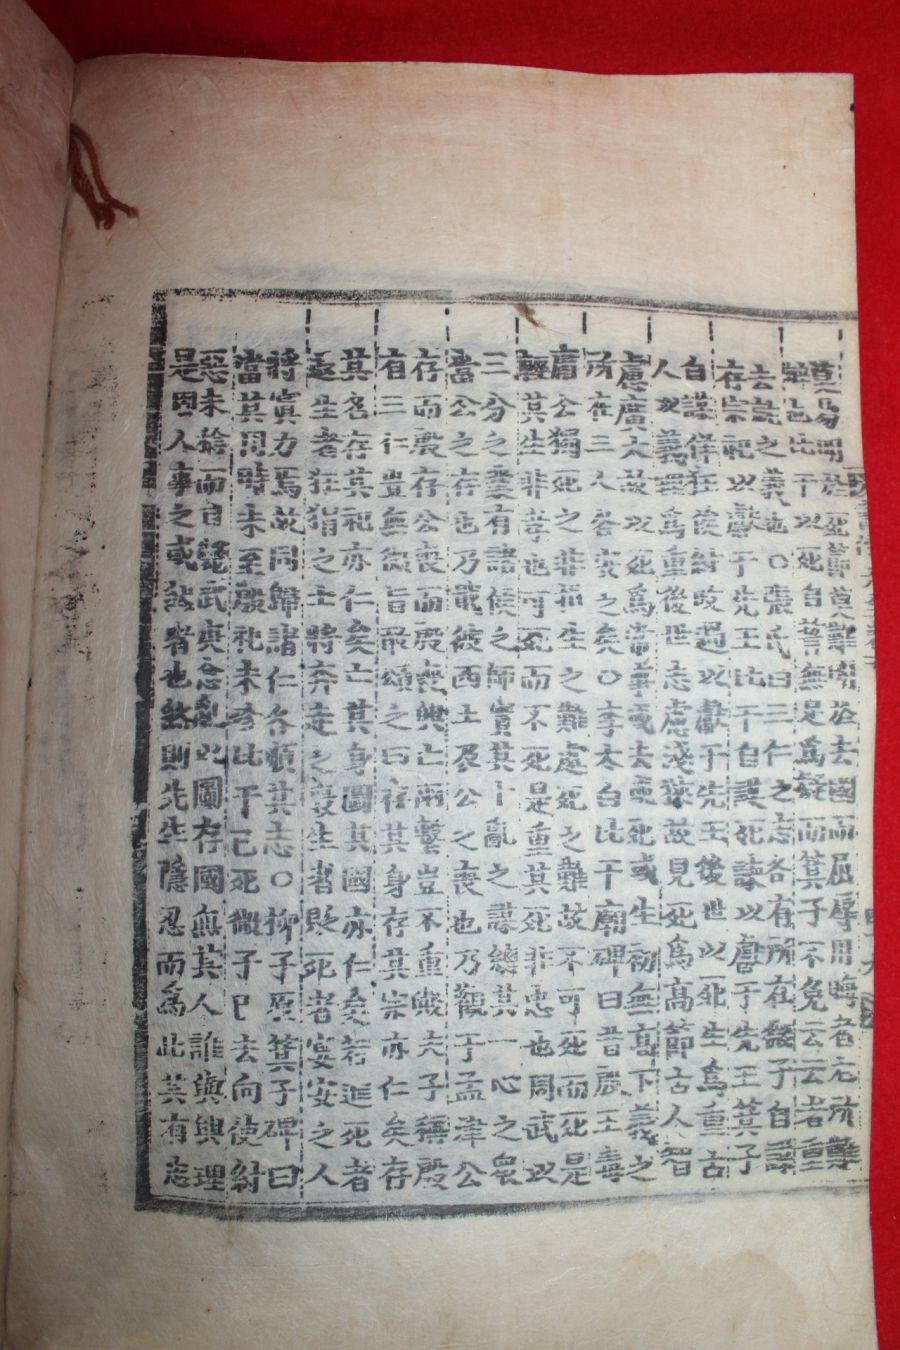 莫易明於死節莫難明於去國而屈辱用晦者尤所難
辨也比干以死自誓無足爲疑而箕子不免云云者重
去就之義也○張氏曰三仁之志各有所在微子自謀
存宗祀以獻于先王比干自謀死諫以獻于先王箕子
自謀佯狂俟紂改過以獻于先王後世以死生爲重古
人以義理爲重後世志慮淺狹故見死爲高節古人智
慮廣大故以死爲常事或去或死或生初無高下義之
所在三人答實之矣○李太白比干廟碑曰昔殷王毒
庸公獨死之非捐生之難處死之難故不可死而死是
輕其生非孝也可死而不死是重其死非忠也周武以
三分之業有諸侯之師實其十亂之謀總其一心之衆
當公之存也乃戢彼西土及公之喪也乃觀于孟津公
存而殷存公喪而殷喪興亡兩繫豈不重歟夫子稱殷
有三仁豈無微旨最頌之曰存其身存其宗亦仁矣存
其名存其祀亦仁矣亡其身圖其國亦仁矣若進死者
退生者狂狷之士將奔走之褒生者貶死者宴安之人
將寘力焉故同歸諸仁各順其志○柳子厚箕子碑曰
當其周時未至殷祀未殄比干已死微子已去向使紂
惡未稔而自斃武庚念亂以圖存國無其人誰與興理
是固人事之或然者也然則先生隱忍而爲此其有志